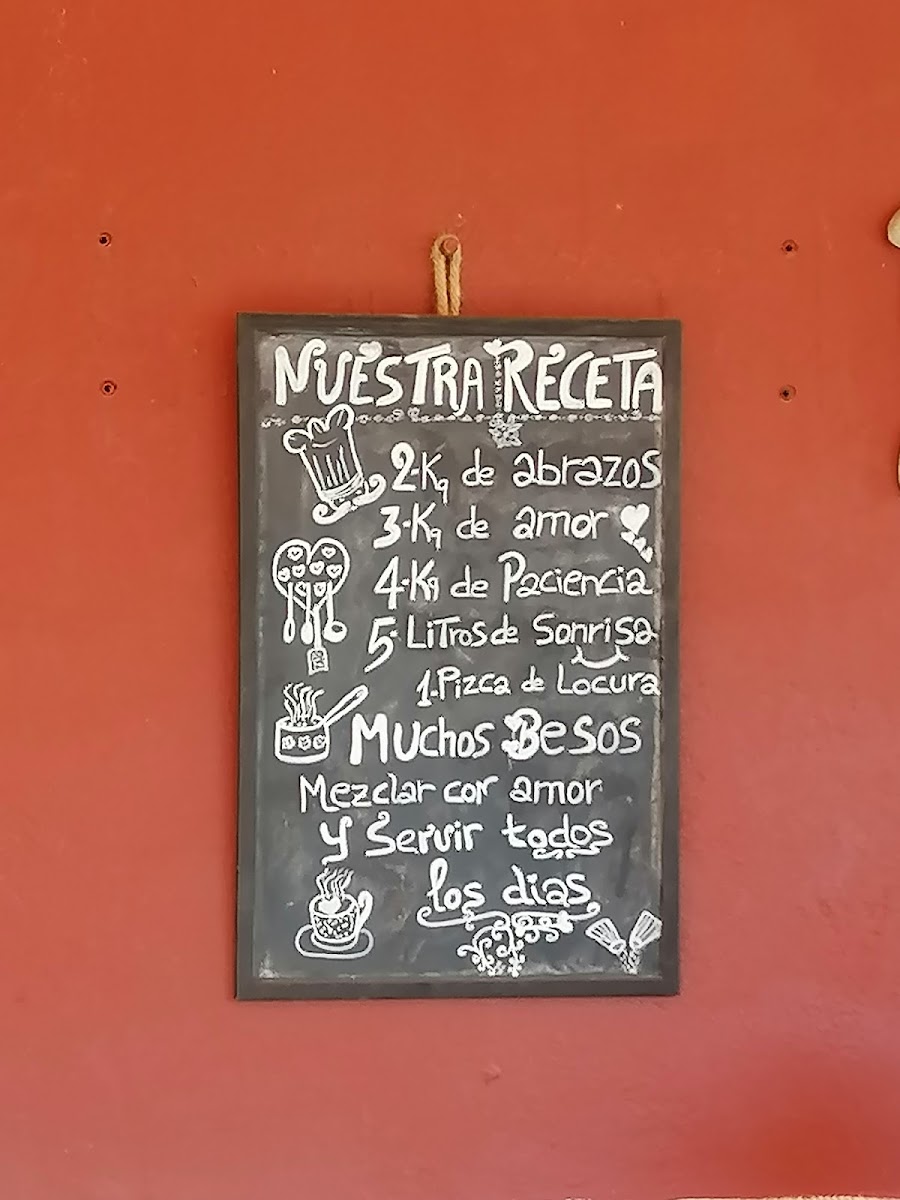 NUESTRA RECETA
2-Kg de abrazos
3-Kg de amor
4-Kg de Paciencia
5-LiTros de Sonrisa
1-Pizca de Locura
MUchos Besos
Mezclar con amor
y Servir todos
los dias